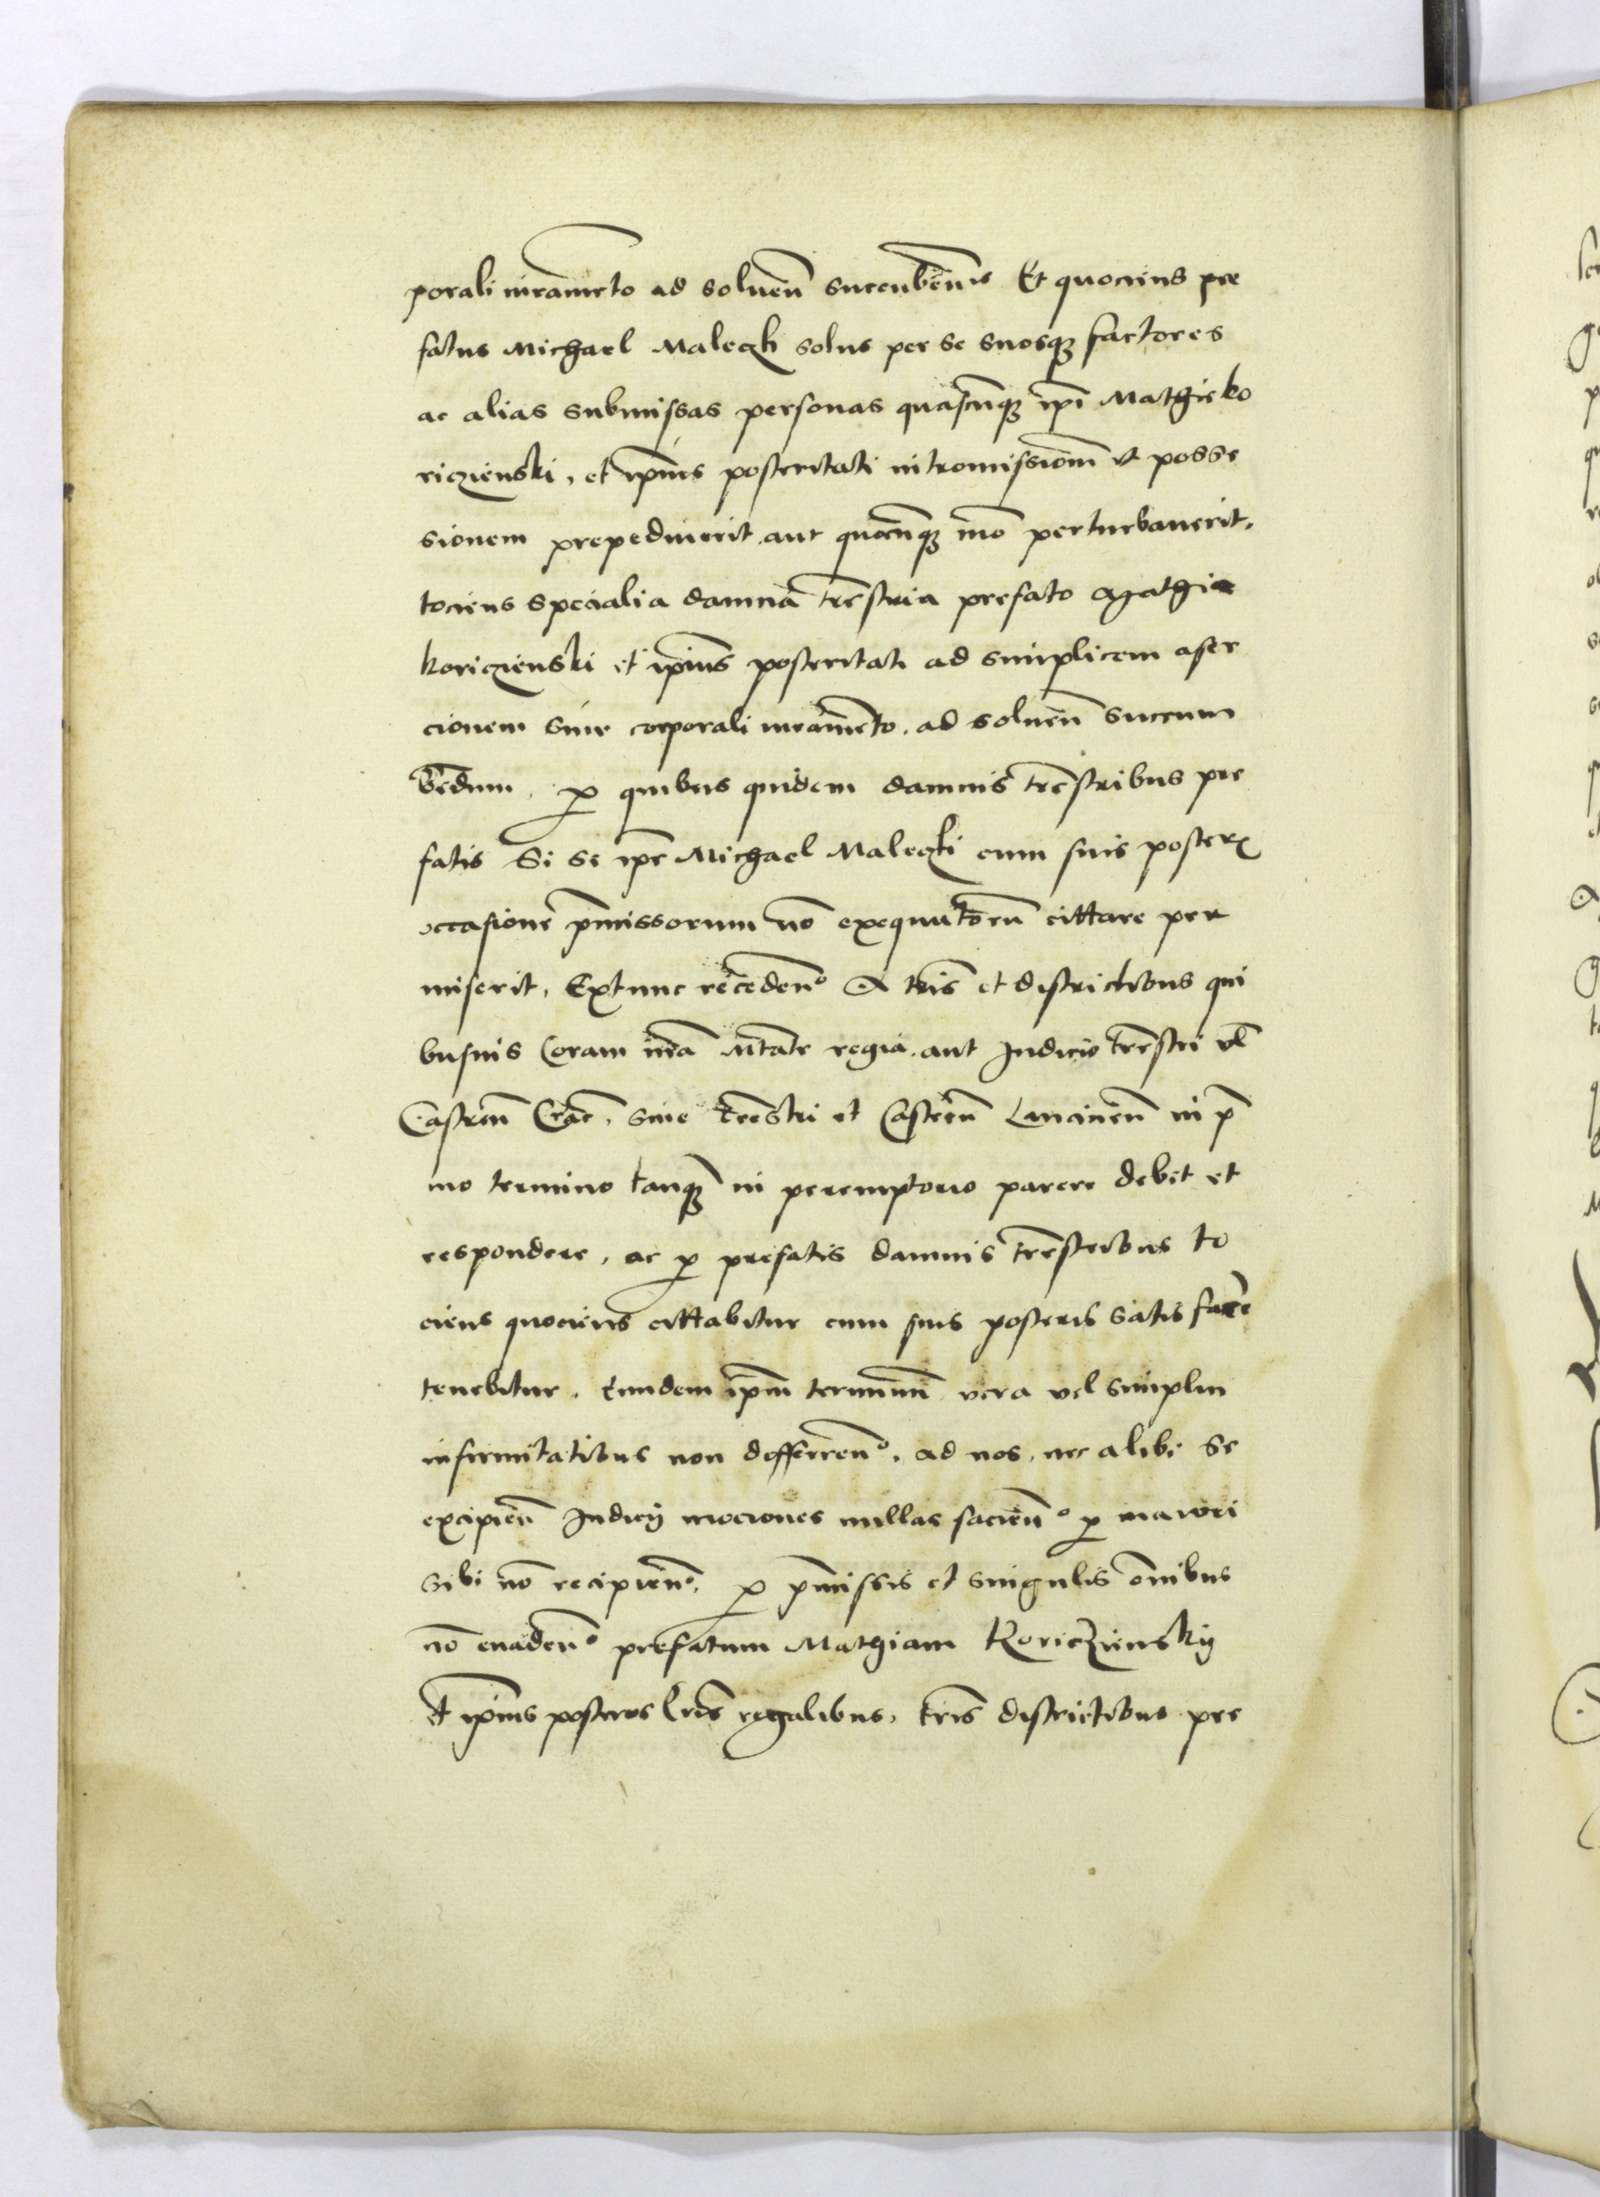 porali iuramēto ad soluen̄ sucūbēn̄s Et quociens pre
fatus Michael Maleczki solus per se suosqꝫ factores
ac alias submissas personas quascūqꝫ ip̄i Mathie ko
riczienski, et ip̄ius posteritati intromissionem et posse
sionem prepedinerit aut quocūqꝫ mō perturbauerit,
tociens specialia damna trēstria prefato Mathie
koriczienski et ip̄ius posteritati ad simplicem aser
cionem sine corporali iuramēto, ad soluen̄ succum
bēdum, ꝓ quibus quidem damnis trēstribus pre
fatis Si se ip̄e Michael Maleczki cum suis posteris
occasione p̄missorum nō exequutorū cittare per
miserit, Extunc recedeñ A tr̄is et districtibus qui
busuis Coram nr̄a Mtate regia aut Iudicio trēstri vl̄
Castren̄ Crac̄, siue trēstri et Castren̄ Lancicien̄ in p̄
mo termino tanqꝫ in peremptorio parere debet et
respondere, ac ꝓ prefatis damnis trēstribus to
ciens quociens cittabitur cum suis posteris satis facēe
tenebitur, Eundem ip̄m terminū vera vel simplici
infirmitatibus non differreñ, ad nos, nec alibi se
excipien̄ Iudicij mociones nullas facieñ ꝓ maiori
sibi nō recipieñ, ꝓ p̄missis et singulis om̄ibus
nō euadeñ prefatum Mathiam Koriczienskij
Et ip̄ius posteros Lr̄is regalibus, tr̄is districtibus pre